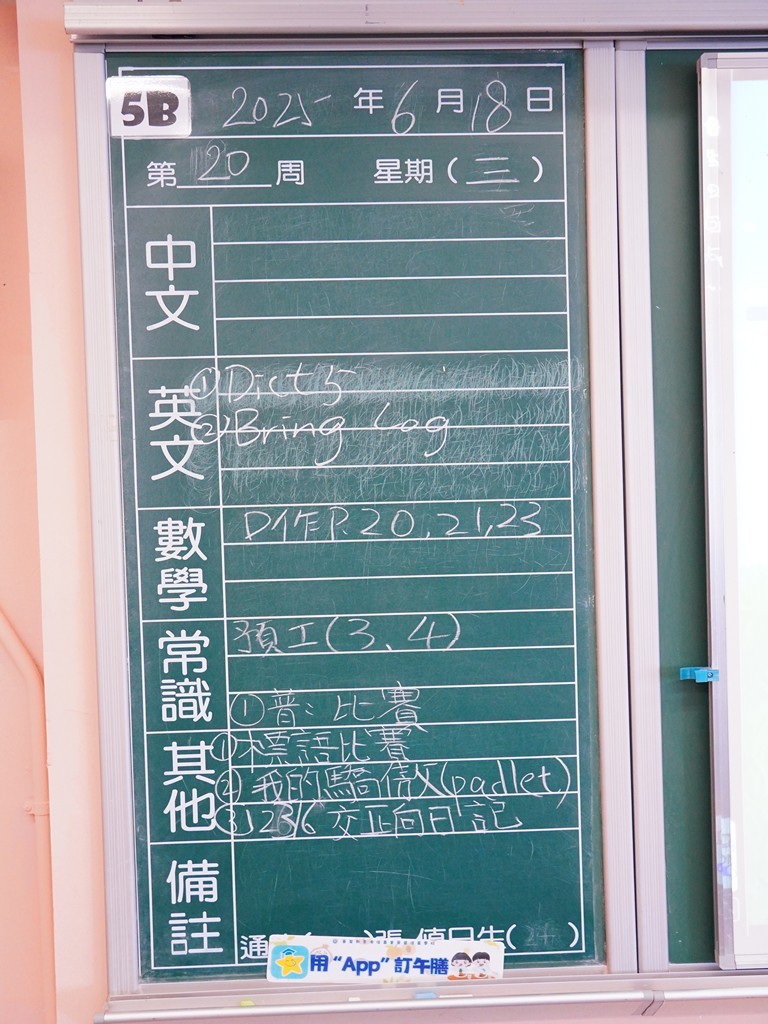 5B
2025 年 6 月 18 日
第 20 周 星期 ( 三 )
中文
英文
① Dict 5
② Bring Log
數學
D作 P. 20, 21, 23
常識
預工 (3、4)
① 普: 比賽
其他
① 標語比賽
② 我的驕傲 (padlet)
③ 23/6 交正向日記
備註
通 ( ) 張 值日生 ( 24 )
用 "App" 訂午膳